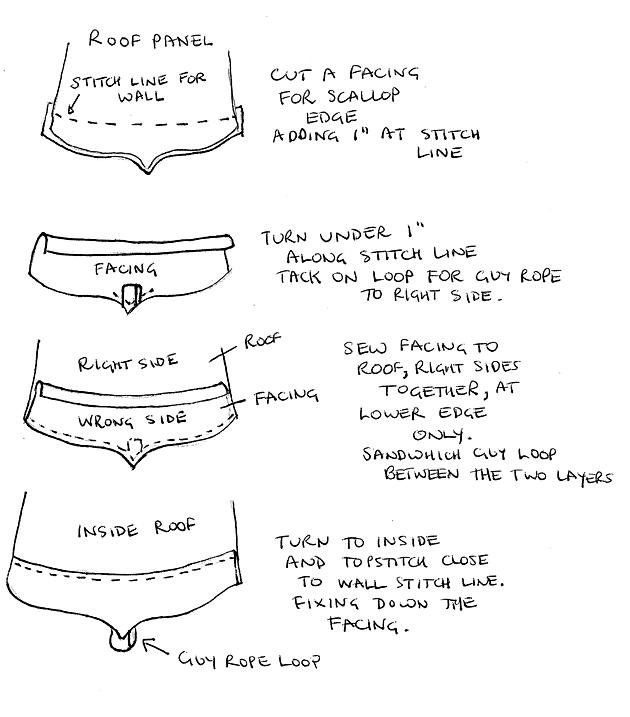 ROOF PANEL
STITCH LINE FOR
WALL
CUT A FACING
FOR SCALLOP
EDGE
ADDING 1" AT STITCH
LINE
FACING
TURN UNDER 1"
ALONG STITCH LINE
TACK ON LOOP FOR GUY ROPE
TO RIGHT SIDE.
RIGHT SIDE
ROOF
FACING
WRONG SIDE
SEW FACING TO
ROOF, RIGHT SIDES
TOGETHER, AT
LOWER EDGE
ONLY.
SANDWHICH GUY LOOP
BETWEEN THE TWO LAYERS
INSIDE ROOF
GUY ROPE LOOP
TURN TO INSIDE
AND TOPSTITCH CLOSE
TO WALL STITCH LINE.
FIXING DOWN THE
FACING.